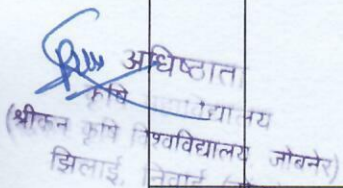 अधिष्ठाता
कृषि महाविद्यालय
(श्रीकन कृषि विश्वविद्यालय जोबनेर)
झिलाई, निवाई